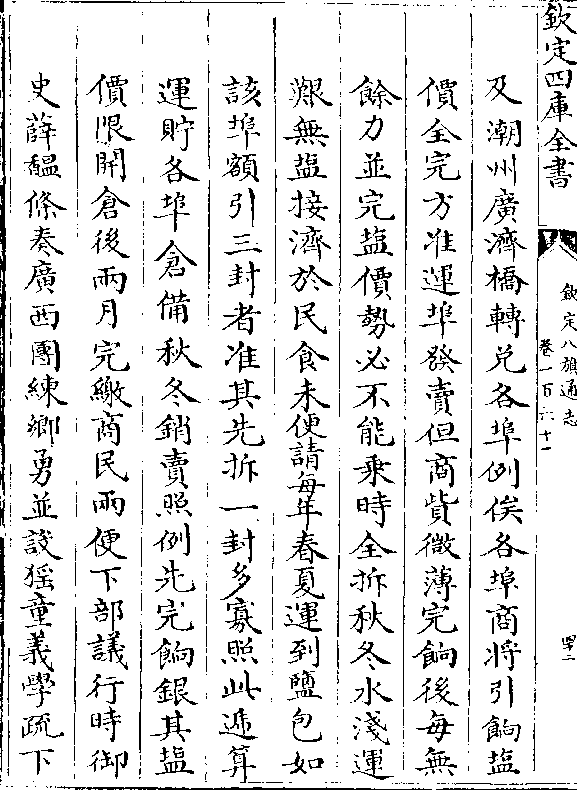 欽定四庫全書
欽定八旗通志
卷一百六十一
四二
及潮州廣濟橋轉兑各埠例俟各埠商將引餉塩
價全完方准運埠發賣但商貲微薄完餉後每無
餘力並完塩價勢必不能乗時全拆秋冬水淺運
艱無塩接濟於民食未便請每年春夏運到鹽包如
該埠額引三封者准其先拆一封多寡照此遞算
運貯各埠倉備秋冬銷賣照例先完餉銀其塩
價限開倉後兩月完繳商民兩便下部議行時御
史薛馧條奏廣西團練鄉勇並設猺童義學疏下